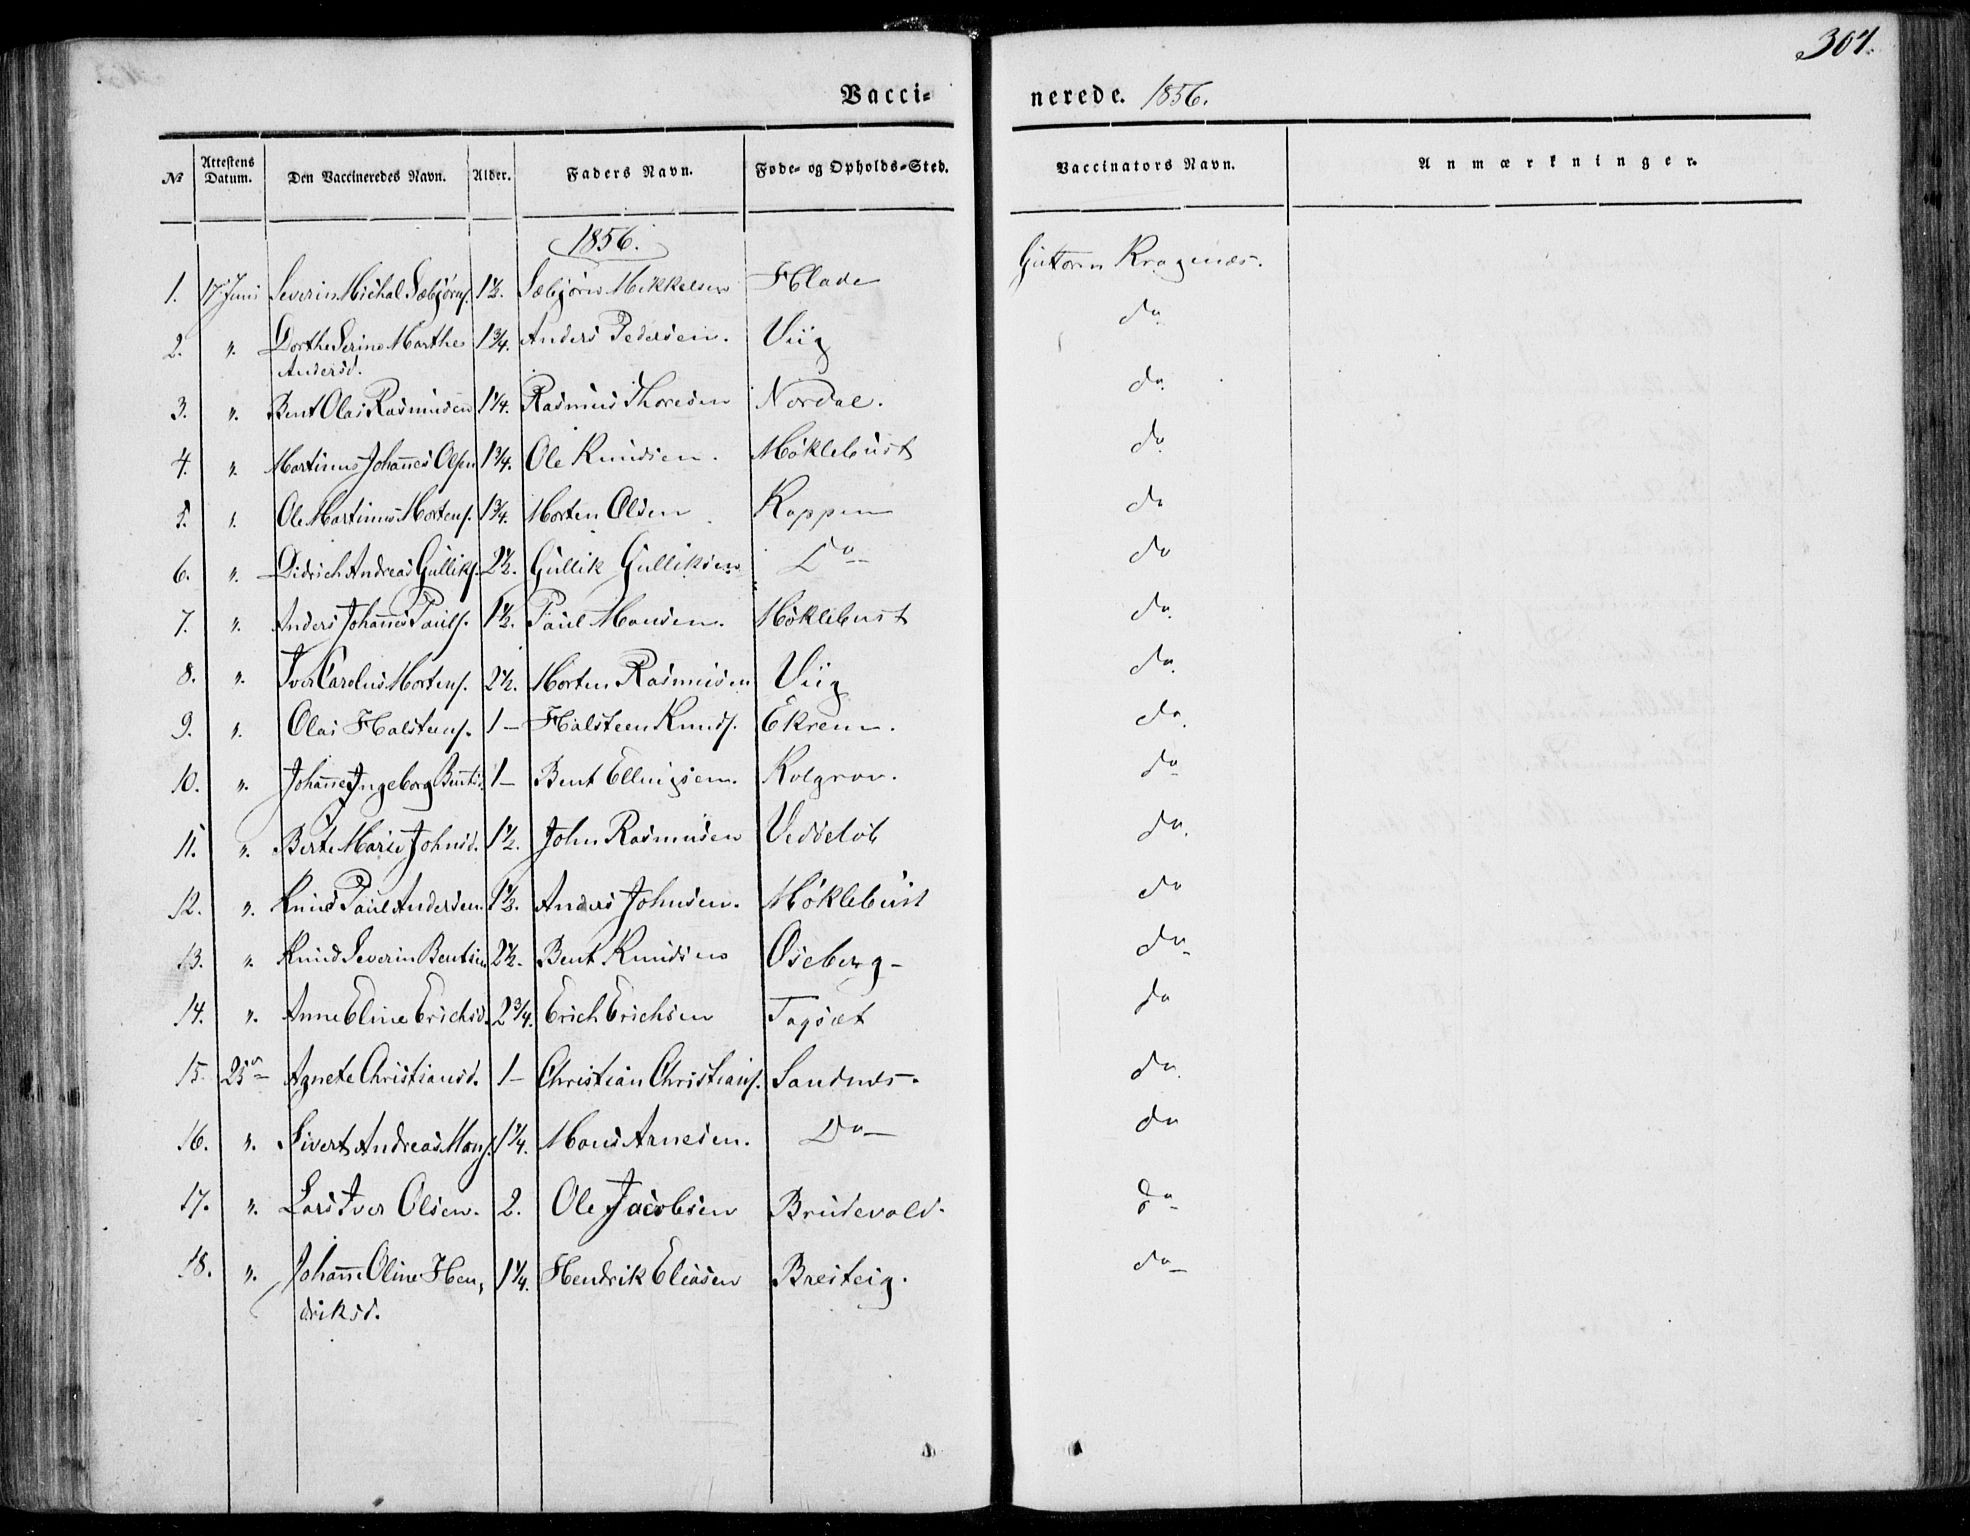 304.
Vacci- nerede. 1856.
№ Attestens Datum. Den Vaccineredes Navn. Alder. Faders Navn. Føde- og Opholds-Sted. Vaccinators Navn. Anmærkninger.
1856.
1. 17 Juni Severin Michal Sæbjørns. 1½. Sæbjørn Mikkelsen Flade Guttorm Kragenæs.
2. ". Dorthe Serine Marthe 1¾. Anders Pedersen. Viig do.
Andersd.
3. ". Bent Olai Rasmussen 1¼. Rasmus Thoresen Nordal. do.
4. ". Martinus Johannes Olsen 1¾. Ole Knudsen. Møklebust do.
5. ". Ole Martinus Mortens. 1¾. Morten Olsen Koppen do
6. ". Didrich Andreas Gulliks. 2½. Gullik Gulliksen Do do
7. ". Anders Johannes Pauls. 1½. Paul Monsen. Møklebust do.
8. ". Iver Carolus Mortens. 2½. Morten Rasmusen Viig do.
9. ". Olai Halsteens. 1 - Halsteen Knuds. Ekrem. do.
10. ". Johanne Ingeborg Bentsd. 1 - Bent Ellingsen. Kolgrov. do
11. ". Berte Marie Johnsd. 1½. John Rasmusen do.
12. ". Knud Paul Andersen. 1½. Anders Johnsen. Møklebust do
13. ". Knud Severin Bentsen 2½. Bent Knudsen Øseberg - do
14. ". Anne Eline Erichsd. 2¾. Erich Erichsen Tagsæt do
15. 25 do Agnete Christiansd. 1 - Christian Christians. Sandnes. do.
16. ". Sivert Andreas Mons. 1¼. Mons Arnesen. Do do
17. ". Lars Iver Olsen. 2. Ole Jacobsen Brudevold. do
18. ". Johanne Oline Hen, 1¼. Hendrik Eliasen Breiteig. do
driksd.